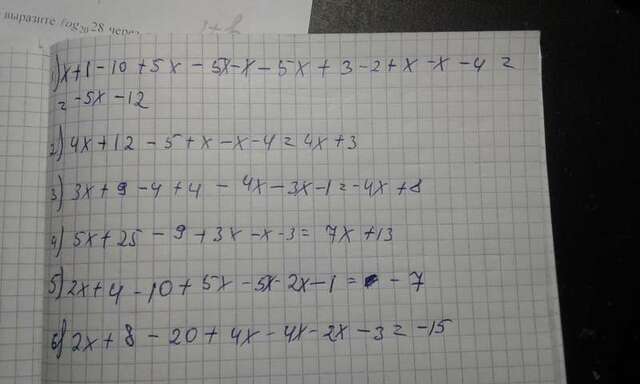 1) x+1-10+5x-5x-x-5x+3-2+x-x-4=
= -5x-12
2) 4x+12-5+x-x-4=4x+3
3) 3x+9-4+4-4x-3x-1=-4x+8
4) 5x+25-9+3x-x-3=7x+13
5) 2x+4-10+5x-5x-2x-1=-7
6) 2x+8-20+4x-4x-2x-3=-15